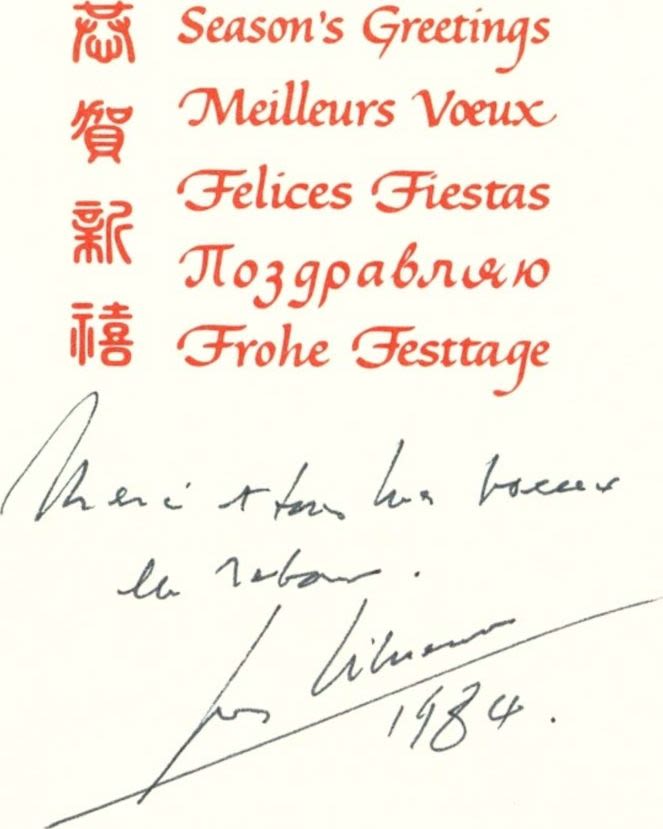 恭賀新禧
Season's Greetings
Meilleurs Vœux
Felices Fiestas
Поздравляю
Frohe Festtage
Merci et tous mes voeux
en retour.
1984.